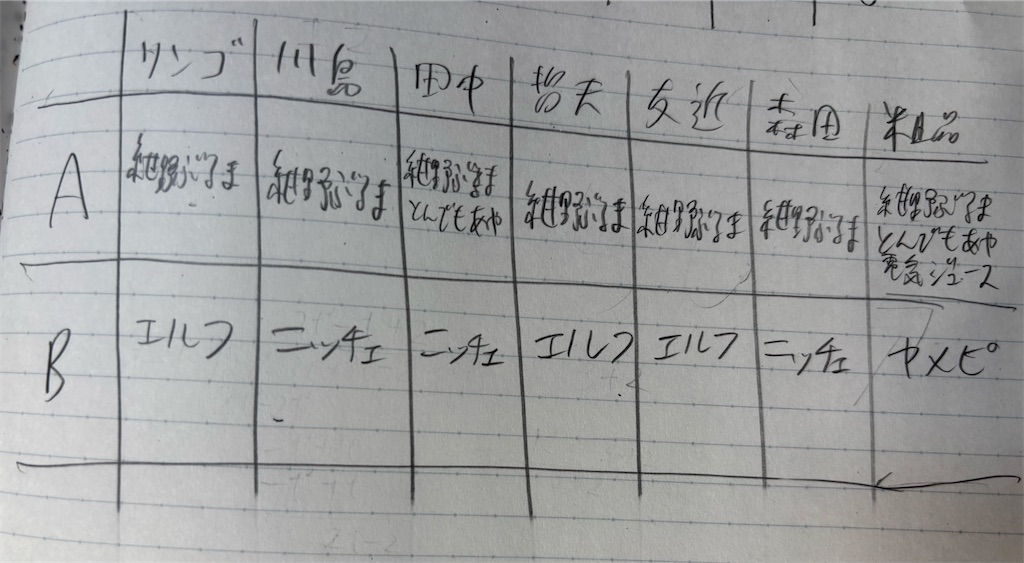 リンゴ 川島 田中 哲夫 友近 森田 粗品
A 紺野ぶるま 紺野ぶるま 紺野ぶるま 紺野ぶるま 紺野ぶるま 紺野ぶるま 紺野ぶるま
とんでもあや とんでもあや
電気ジュース
B エルフ ニッチェ ニッチェ エルフ エルフ ニッチェ ヤメピ